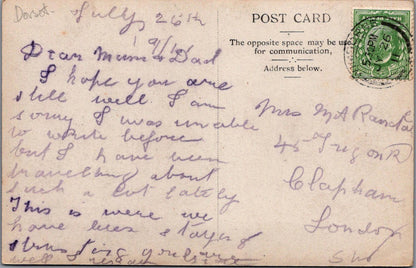 Dorset
July 26th
9/11
Dear Mum & Dad
I hope you are
still well I am
sorry I was unable
to write before
but I have been
travelling about
such a lot lately
This is were we
have been
well
POST CARD
The opposite space may be used
for communication.
Address below.
Mrs M A
45
Clapham
London
SW